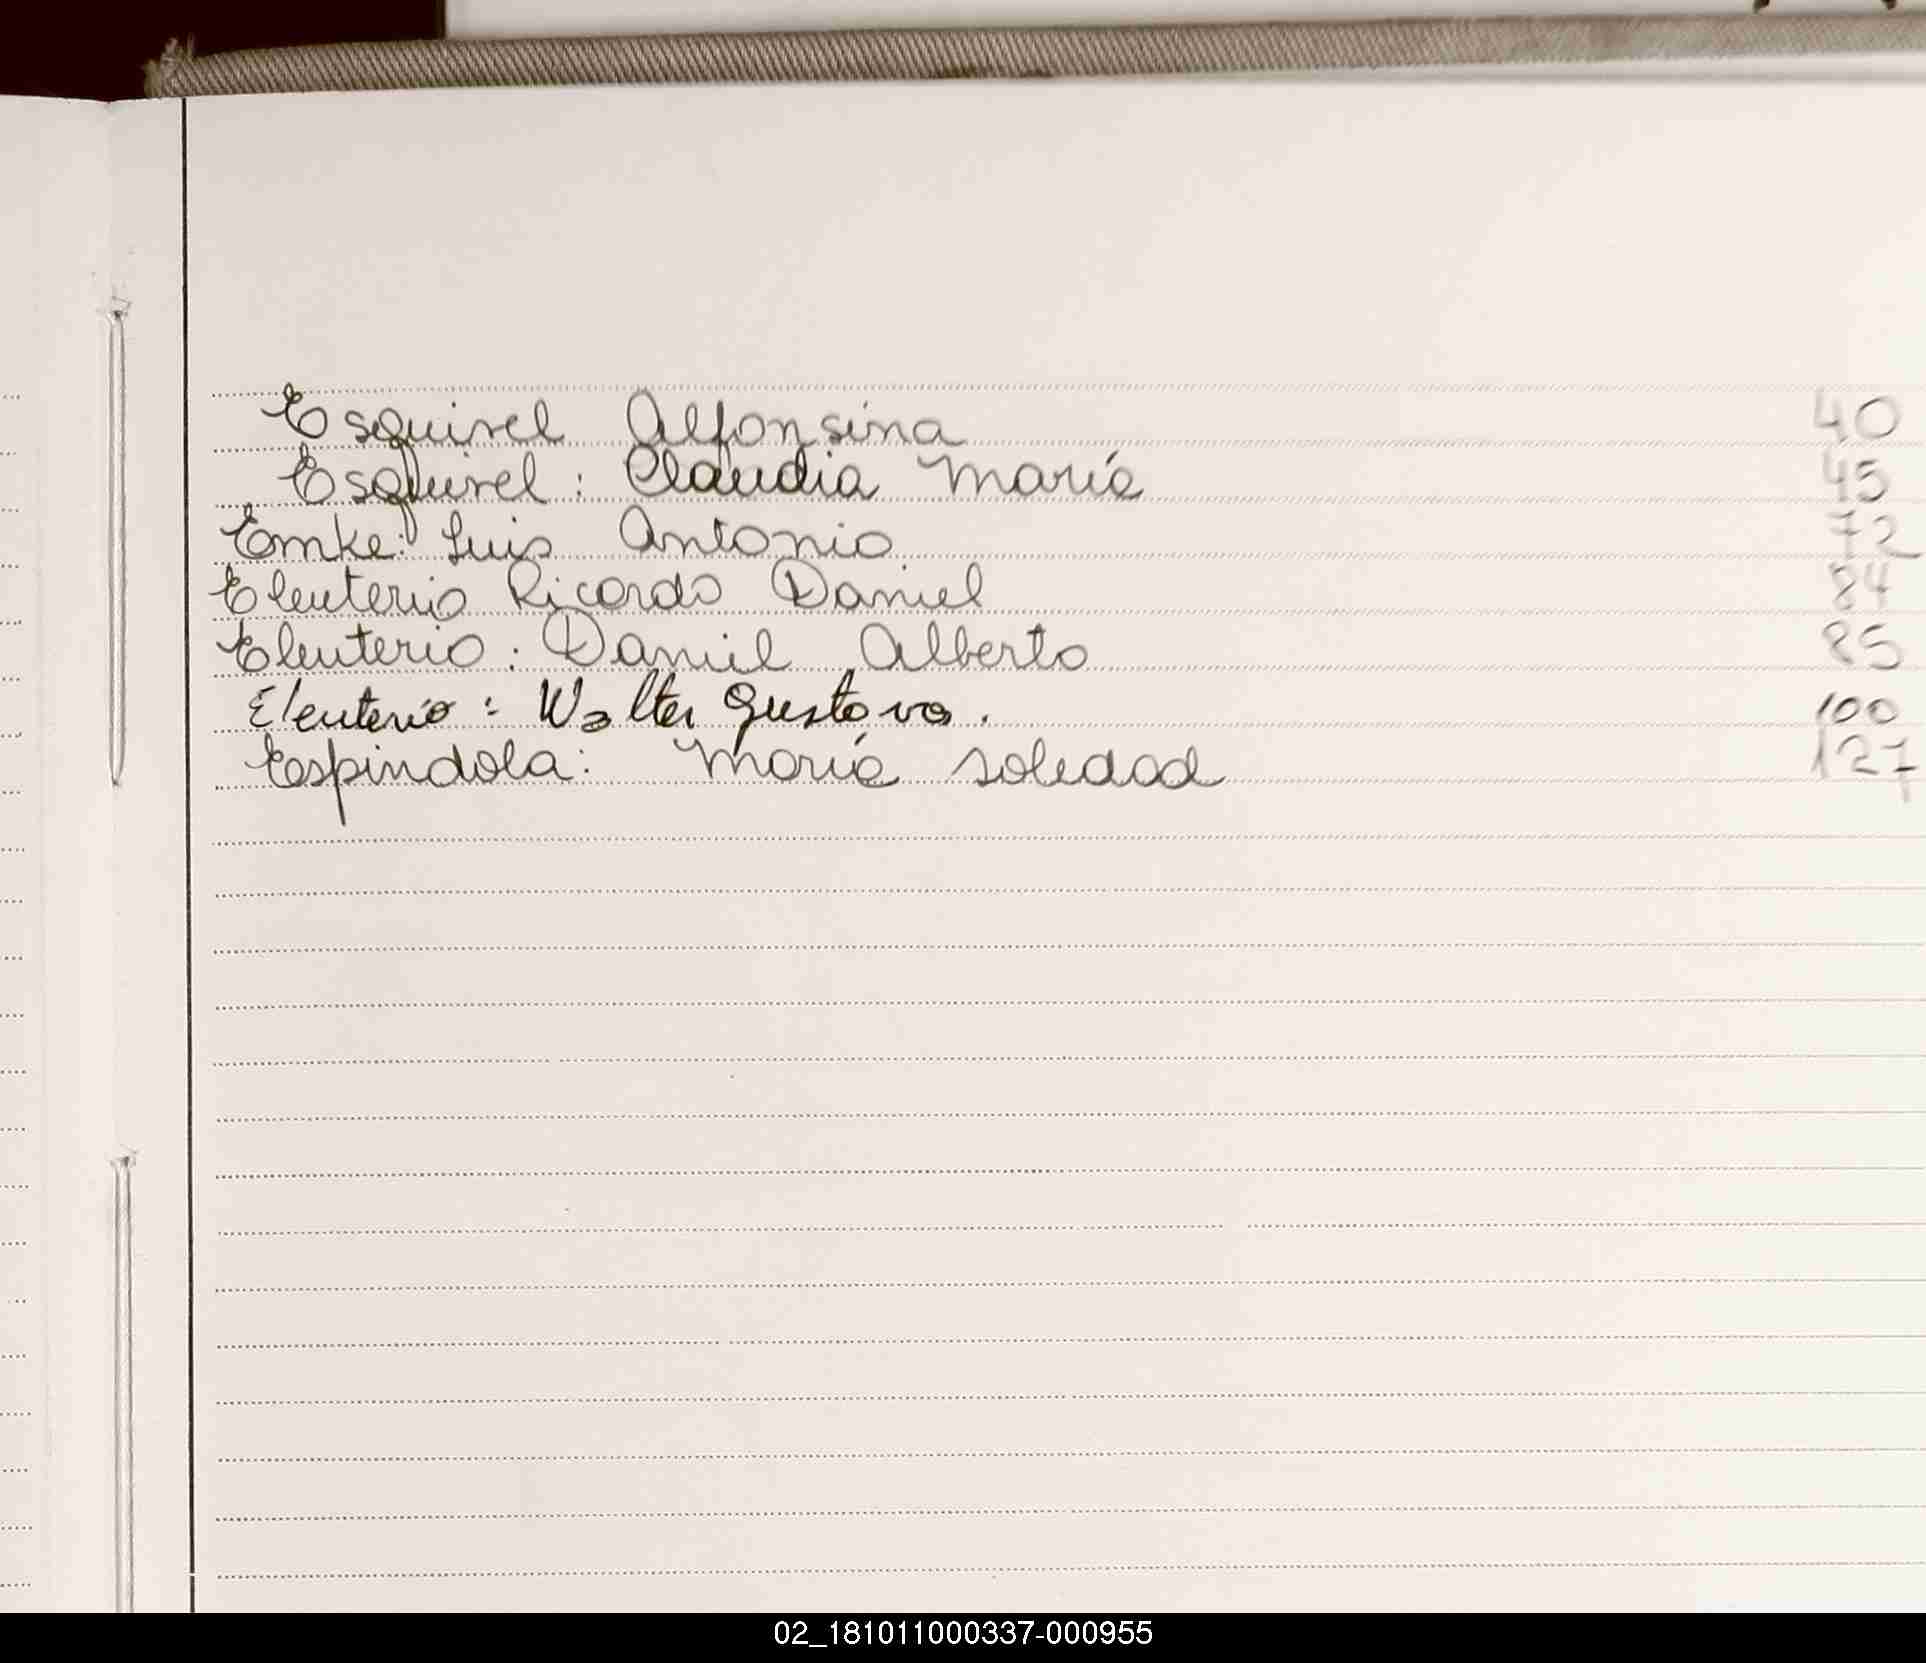 Esquivel Alfonsina 40
Esquivel: Claudia María 45
Emke: Luis Antonio 72
Eleuterio Ricardo Daniel 84
Eleuterio: Daniel Alberto 85
Eleuterio: Walter Gustavo. 100
Espindola: María Soledad 127
02_181011000337-000955